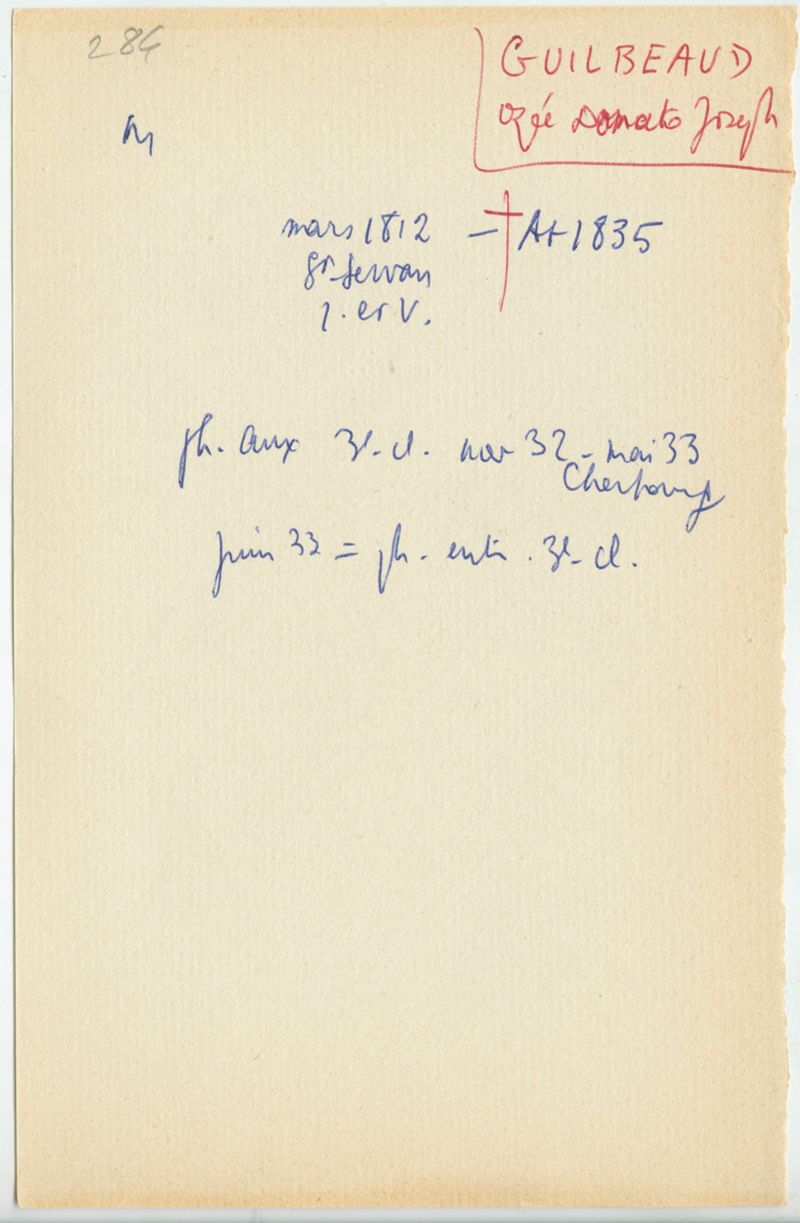 286
GUILBEAUD
Ozée Donato Joseph
M
mars 1812 — † At 1835
St Servan
I. et V.
ph. aux 3e cl. nov 32 - mai 33
Cherbourg
juin 33 = ph. entr. 3e cl.